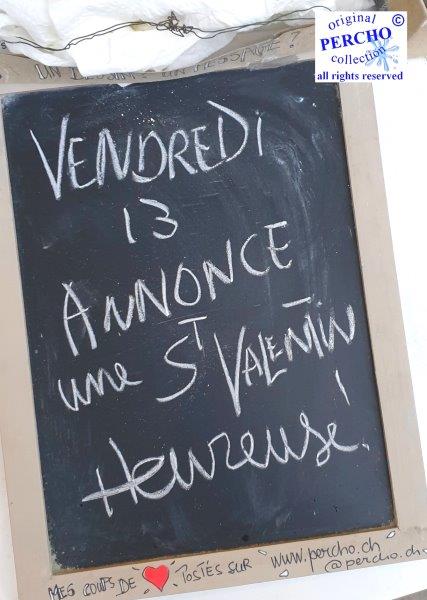 original ©
PERCHO
collection
all rights reserved
VENDREDI
13
ANNONCE
une ST VALENTIN
Heureuse!
MES COUPS DE ❤ POSTÉS SUR www.percho.ch
@percho.ch